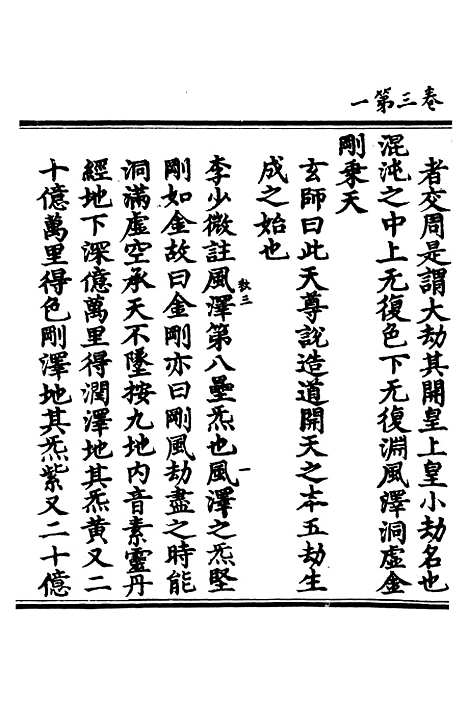 卷三第一
者交周是謂大劫其開皇上皇小劫名也
混沌之中上无復色下无復淵風澤洞虛金
剛乗天
玄師曰此天尊說造道開天之夲五劫生
成之始也
李少微註風澤第八壘炁也風澤之炁堅
敖三
一
剛如金故曰金剛亦曰剛風劫盡之時能
洞滿虛空承天不墜按九地内音素靈丹
經地下深億萬里得潤澤地其炁黄又二
十億萬里得色剛澤地其炁紫又二十億